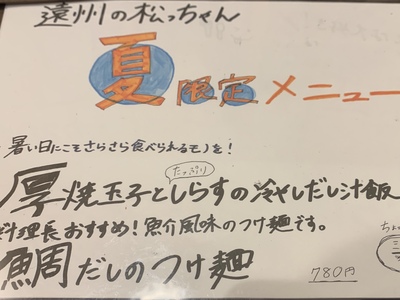 遠州の松っちゃん
夏限定メニュー
暑い日にこそさらさら食べられるモノを!
たっぷり
厚焼玉子としらすの冷やしだし汁飯
料理長おすすめ!魚介風味のつけ麺です。
鯛だしのつけ麺
780円